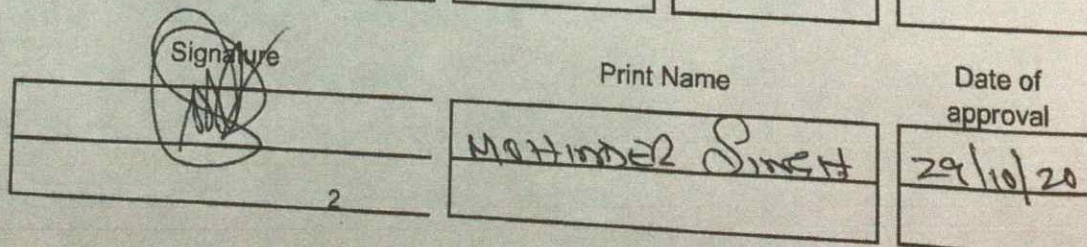 Signature
Print Name
Date of
approval
MOHINDER SINGH
29/10/20
2